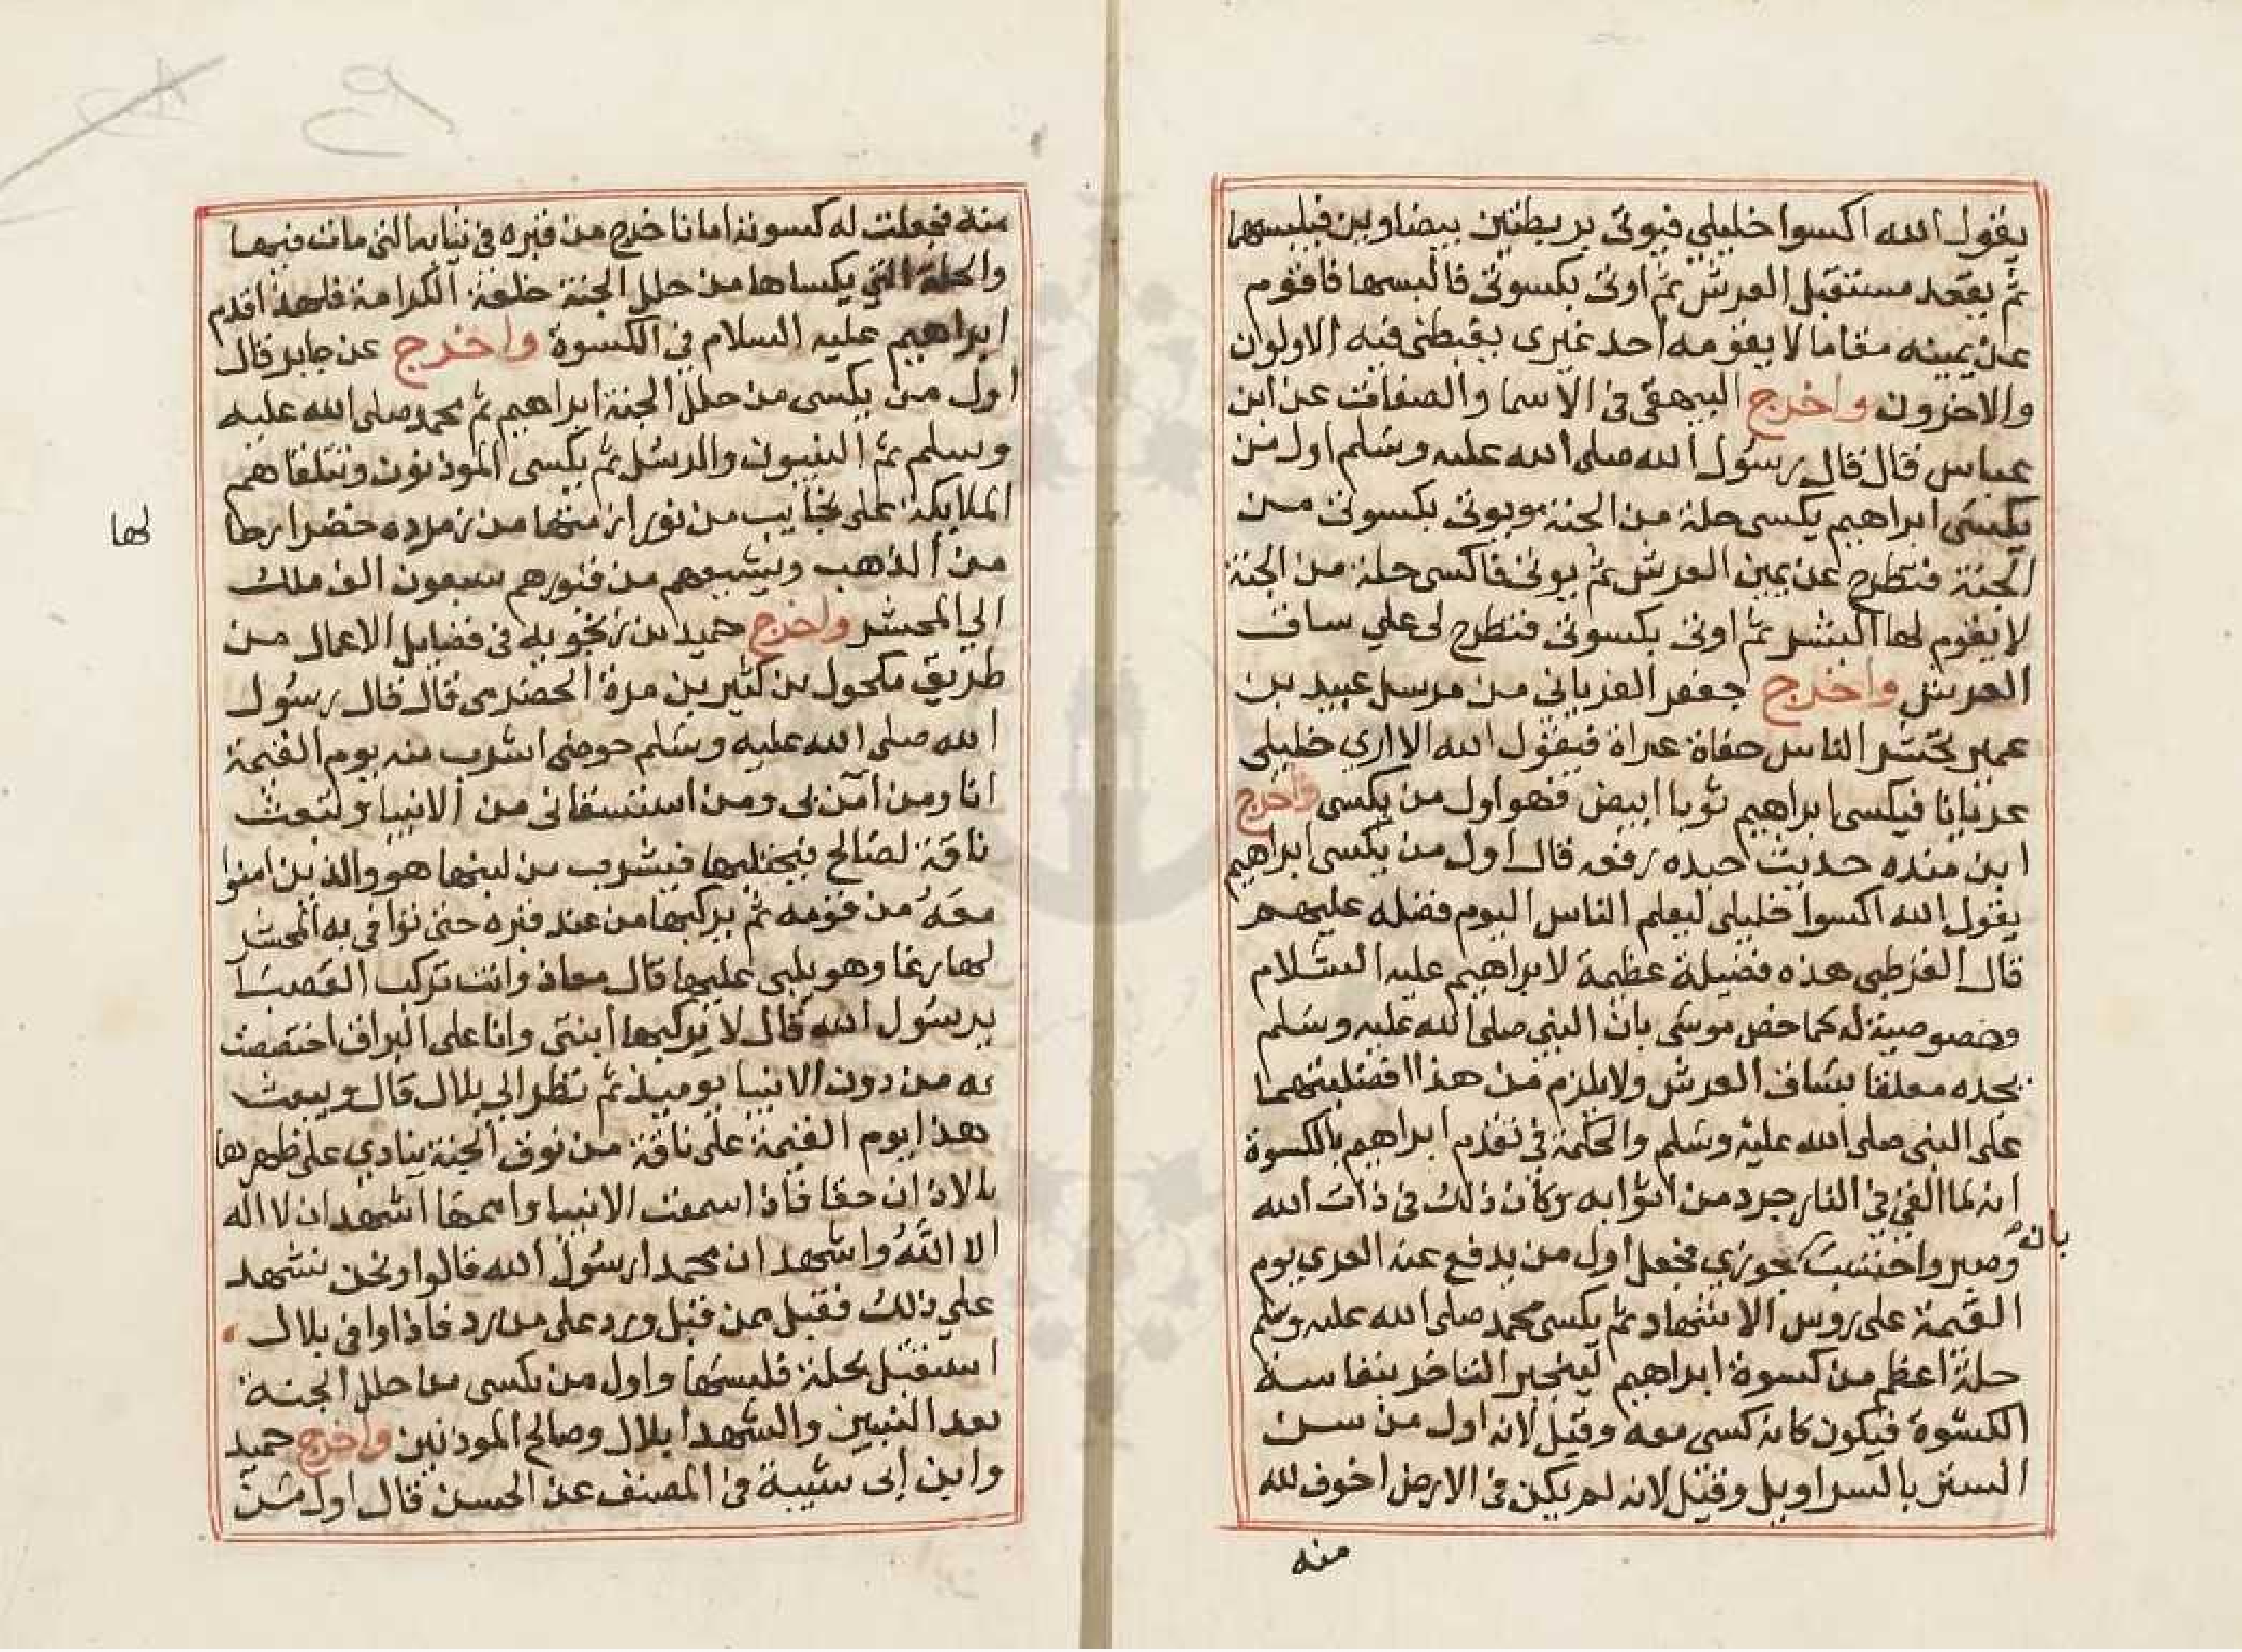 يقول الله اكسوا خليلي فيوتى بريطتين بيضاوين فيلبسهما
ثم يقعد مستقبل العرش ثم اوتى بكسوتى فالبسها فاقوم
عن يمينه مقاما لا يقومه احد غيرى يغبطنى فيه الاولون
والاخرون واخرج البيهقى فى الاسما والصفات عن ابن
عباس قال قال رسول الله صلى الله عليه وسلم اول من
يكسى ابراهيم يكسى حلة من الجنة ويوتى بكسوتى من
الجنة فتطرح عن يمين العرش ثم يوتى فاكسى حلة من الجنة
لا يقوم لها البشر ثم اوتى بكسوتى فتطرح لى على ساق
العرش واخرج جعفر الفريانى من مرسل عبيد بن
عمير يحشر الناس حفاة عراة فيقول الله الا ارى خليلى
عريانا فيكسى ابراهيم ثوبا ابيض فهو اول من يكسى واخرج
ابن منده حديث حيده رفعه قال اول من يكسى ابراهيم
يقول الله اكسوا خليلى ليعلم الناس اليوم فضله عليهم
قال القرطبى هذه فضيلة عظيمة لابراهيم عليه السلام
وخصوصية له كما خص موسى بان النبى صلى الله عليه وسلم
يجده معلقا بساق العرش ولا يلزم من هذا افضليتهما
على النبى صلى الله عليه وسلم والحكمة فى تقديم ابراهيم بالكسوة
انه لما القى فى النار جرد من اثوابه وكان ذلك فى ذات الله
وصبر واحتسب فجوزي فجعل اول من يدفع عنه العرى يوم
بان
القيمة على روس الاشهاد ثم يكسى محمد صلى الله عليه وسلم
حلة اعظم من كسوة ابراهيم لينجبر التاخر بنفاسة
الكسوة فيكون كانه كسى معه وقيل لانه اول من سن
الستر بالسراويل وقيل لانه لم يكن فى الارض اخوف لله
منه
منه فجعلت له كسوته امانا خرج من قبره فى ثيابه التى مات فيها
والحلة التي يكساها من حلل الجنة خلعة الكرامة فلهذا قدم
ابراهيم عليه السلام في الكسوة واخرج عن جابر قال
اول من يكسى من حلل الجنة ابراهيم ثم محمد صلى الله عليه
وسلم ثم النبيون والرسل ثم يكسى الموذنون وتتلقاهم
الملايكة على نجايب من نور ازمتها من زمرده خضرا رحا
لها
من الذهب ويشيعهم من قبورهم سبعون الف ملك
الي المحشر واخرج حميد بن زنجويه فى فضايل الاعمال من
طريق مكحول بن كثير بن مرة الحضرمى قال قال رسول
الله صلى الله عليه وسلم حوضى اشرب منه يوم القيمة
انا ومن آمن بى ومن استسقانى من الانبيا وتبعث
ناقة لصالح فيحتلبها فيشرب من لبنها هو والذين امنوا
معه من قومه ثم يركبها من عند قبره حتى توافى به المحشر
لها رغا وهو يلبى عليها قال معاذ وانت تركب العضبا
يرسول الله قال لا يركبها ابنتى وانا على البراق اختصصت
به من دون الانبيا يوميذ ثم نظر الى بلال قال ويبعث
هذا يوم القيمة على ناقة من نوق الجنة ينادي على ظهرها
بالاذان حقا فاذا سمعت الانبيا واممها اشهد ان لا اله
الا الله واشهد ان محمدا رسول الله قالوا ونحن نشهد
علي ذلك فقبل ممن قبل ورد على من رد فاذا وافى بلال
استقبل بحلة فلبسها واول من يكسى من حلل الجنة
بعد النبيين والشهدا بلال وصالح الموذنين واخرج حميد
وابن ابى شيبة فى المصنف عن الحسن قال اول من